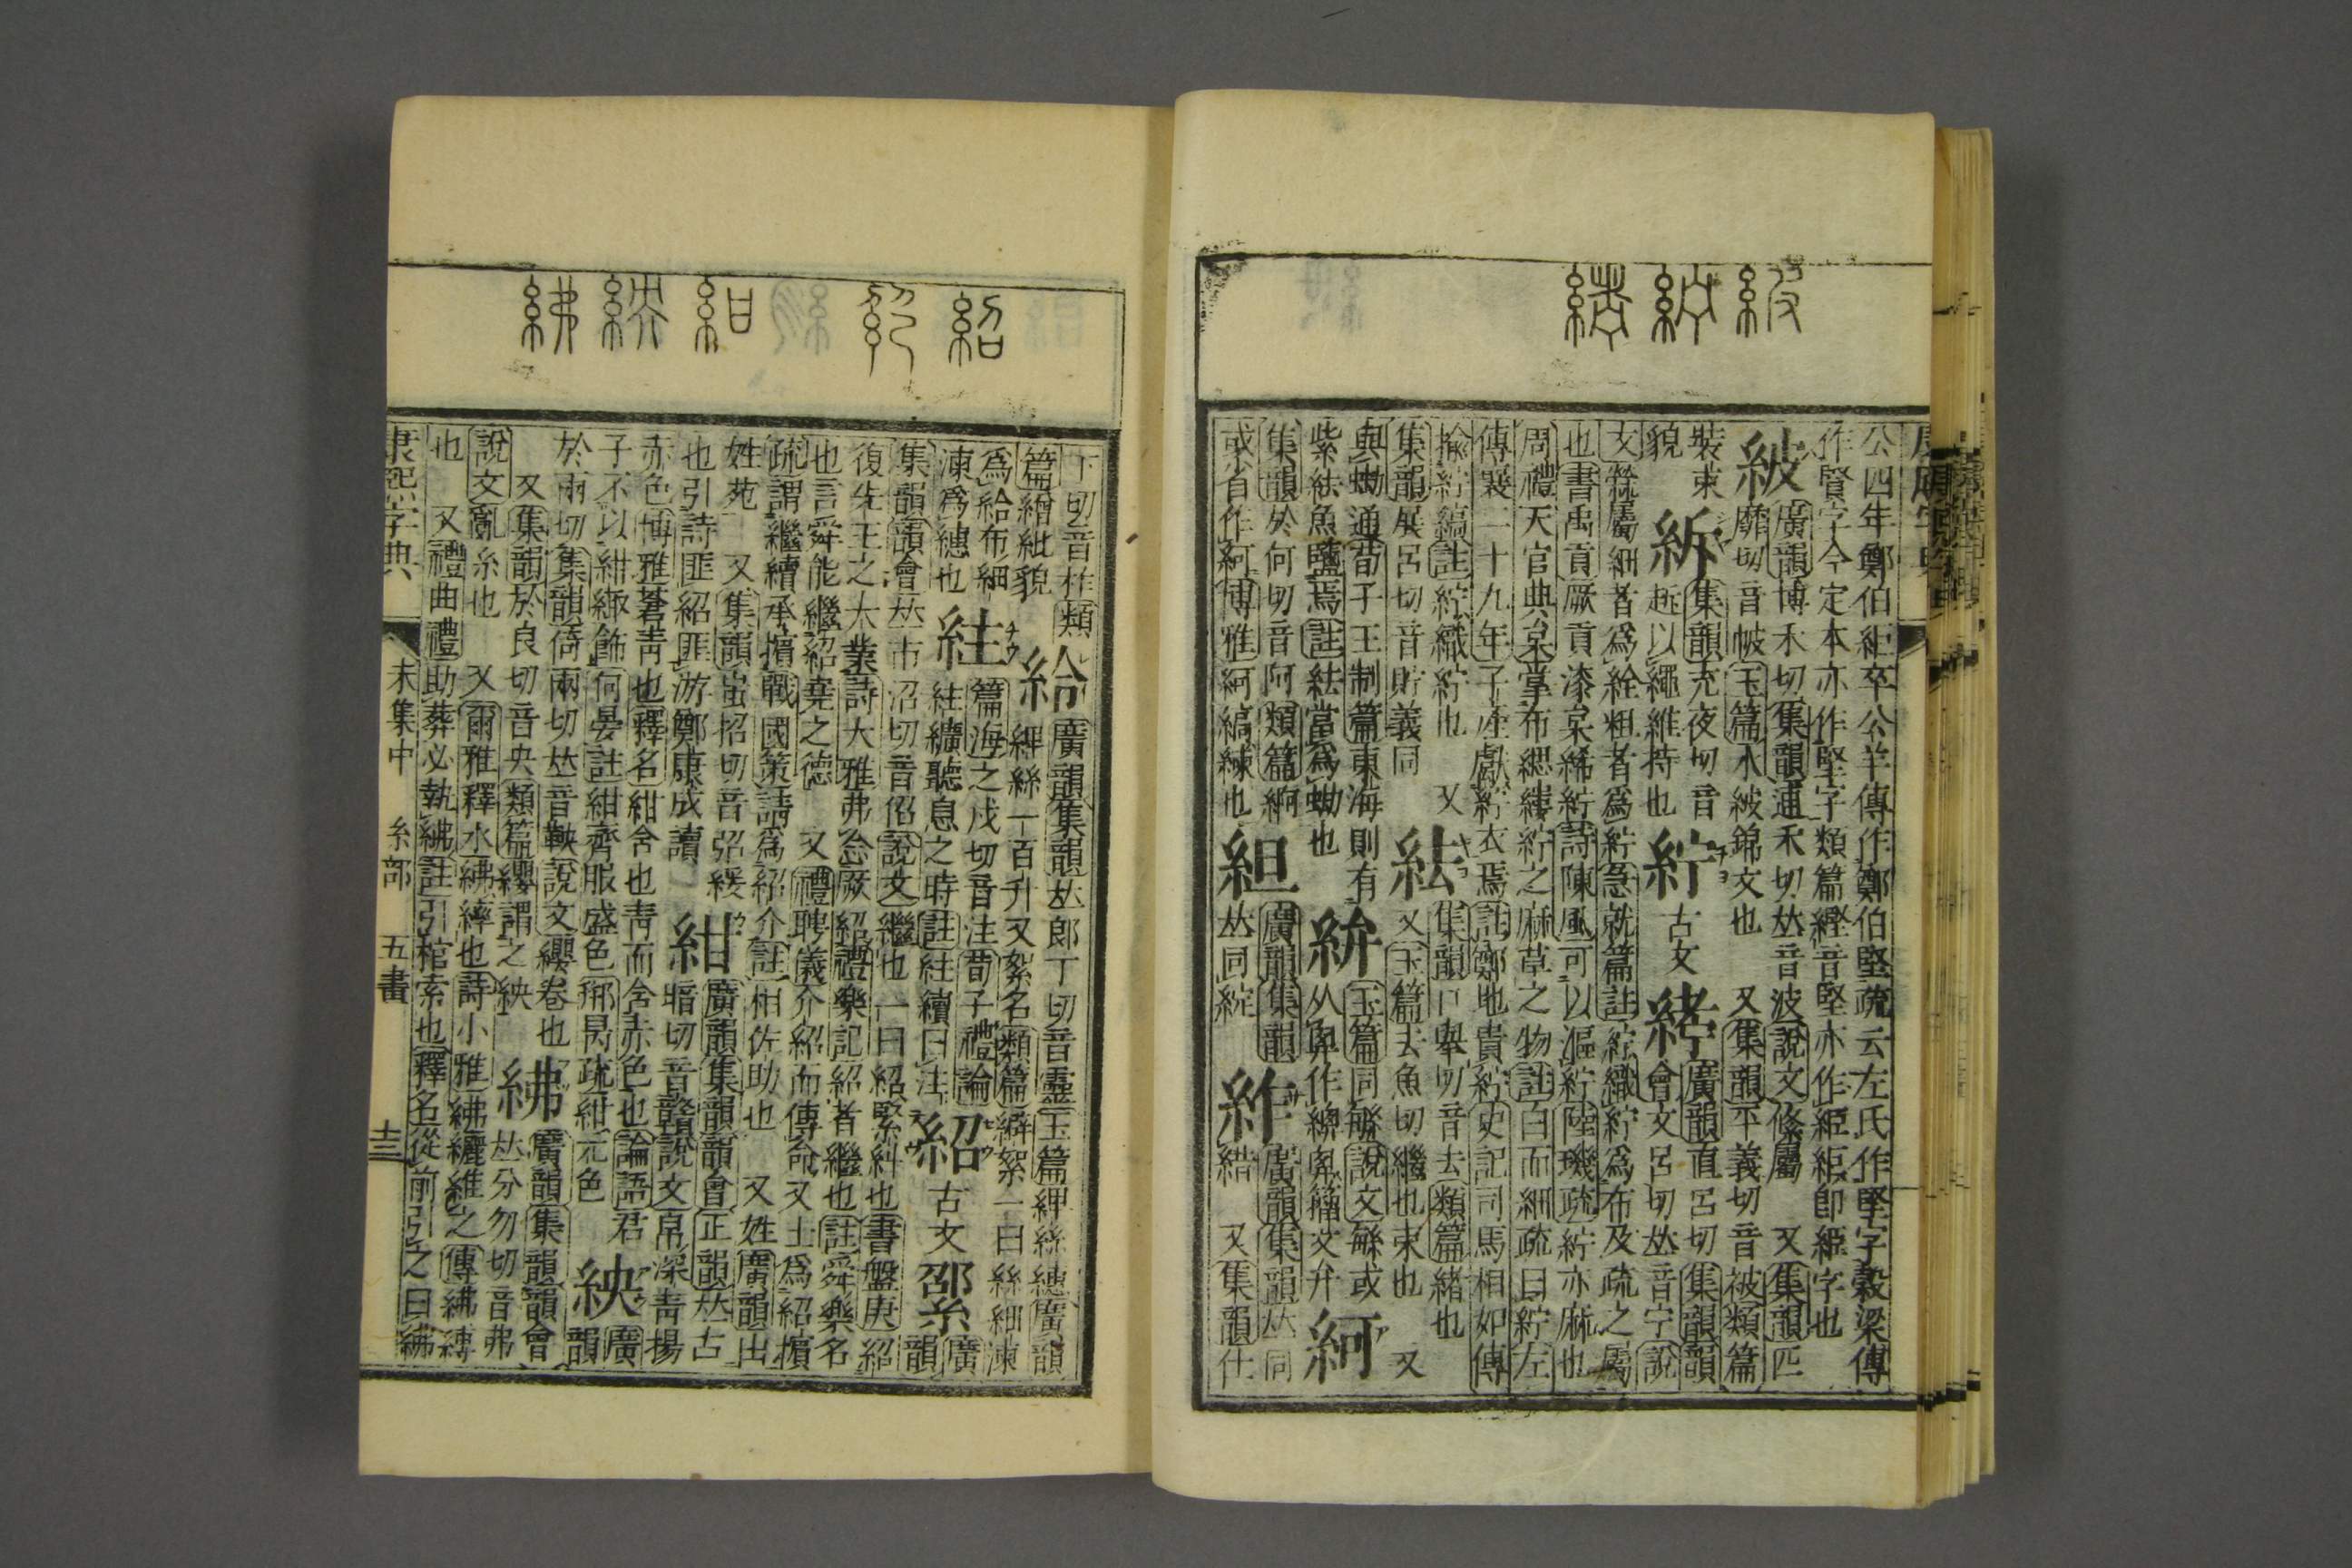 公四年鄭伯䋆卒公羊傳作鄭伯堅疏云左氏作堅字穀梁傳
作賢字今定本亦作堅字類篇䌑音堅亦作䋆䋆卽䋆字也
紴 廣韻博禾切集韻逋禾切𠀤音波說文絛屬 又集韻匹
靡切音帔玉篇水紴錦文也 又集韻平義切音被類篇
裝束貌
集韻充夜切音
䞣以繩維持也
紵 古文
廣韻直呂切集韻韻會丈呂切𠀤音宁說
文檾屬細者爲絟粗者爲紵急就篇註紵織紵爲布及疏之屬
也書禹貢厥貢漆枲絺紵詩陳風可以漚紵陸璣疏紵亦麻也
周禮天官典枲掌布緦縷紵之麻草之物註白而細疏曰紵左
傳襄二十九年子產獻紵衣焉註鄭地貴紵史記司馬相如傳
揄紵縞註紵織紵也 又
集韻展呂切音貯義同
紶 集韻口舉切音去類篇緒也
又玉篇去魚切繼也束也 又
與蚴通荀子王制篇東海則有
紫紶魚鹽焉註紶當爲蚴也
玉篇同緐說文緐或
从𢍘作䋣𢍘籀文弁
紽
集韻於何切音阿類篇綱
或省作紽博雅紽縞練也
組 廣韻集韻
𠀤同綻
紨 廣韻集韻𠀤同
䋎 又集韻仕
下切音柞類
篇繒紕貌
紷 廣韻集韻𠀤郎丁切音靈玉篇紷絲繐廣韻
紷絲一百升又絮名類篇㿉絮一曰絲細湅
爲紷布細
湅爲繐也
紸 篇海之戍切音注荀子禮論
紸纊聽息之時註紸續曰注
紹 古文 綤 廣韻
集韻韻會𠀤市沼切音佋說文繼也一曰紹緊糾也書盤庚紹
復先王之大業詩大雅弗念厥紹禮樂記紹者繼也註舜樂名
也言舜能繼紹堯之德 又禮聘儀介紹而傳命又士爲紹擯
疏謂繼續承擯戰國策請爲紹介註相佐助也 又姓廣韻出
姓苑 又集韻蚩招切音弨緩
也引詩匪紹匪游鄭康成讀
紺 廣韻集韻韻會正韻𠀤古
暗切音贛說文帛深靑揚
赤色博雅蒼靑也釋名紺含也靑而含赤色也論語君
子不以紺緅飾何晏註紺齊服盛色邢昺疏紺元色
紻 廣韻
於兩切集韻倚兩切𠀤音鞅說文纓卷也
又集韻於良切音央類篇纓謂之紻
紼 廣韻集韻韻會
𠀤分勿切音弗
說文亂糸也 又爾雅釋水紼䋖也詩小雅紼纚維之傳紼䋖
也 又禮曲禮助葬必執紼註引棺索也釋名從前引之曰紼
康熙字典 未集中 糸部 五畫 十三